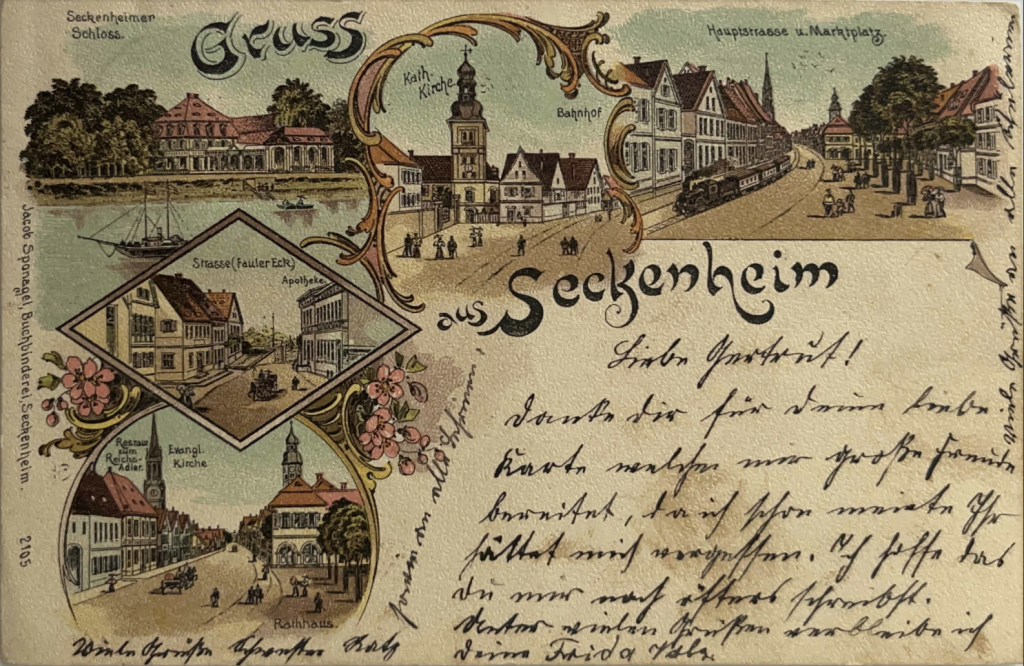 Seckenheimer
Schloss.
Gruss
Kath.
Kirche
Bahnhof
Hauptstrasse u. Marktplatz.
aus Seckenheim
Strasse (Fauler Eck)
Apotheke.
Restau
zum
Reichs-
Adler.
Evangl.
Kirche
Rathhaus.
Jacob Sponagel, Buchbinderei, Seckenheim.
2105
Liebe Gertrut!
Danke dir für deine liebe
Karte welche mir große Freude
bereitet, da ich schon meinte Ihr
hättet mich vergessen. Ich hoffe das
du mir noch öfters schreibst.
Unter vielen Grüßen verbleibe ich
deine Frida
Viele Grüße Schwester
an alle
Viele Grüße an alle